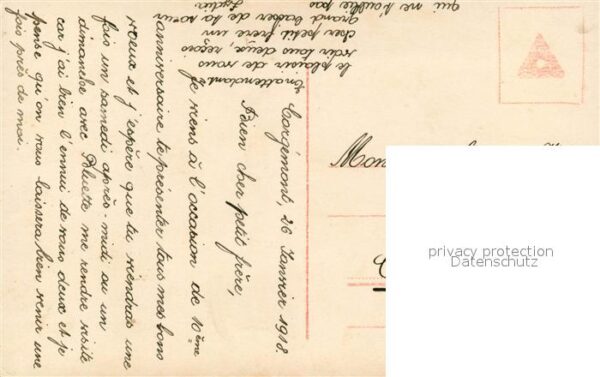 Corgémont, 26 Janvier 1918.
Bien cher petit frère,
Je viens à l'occasion de 10ème
anniversaire te présenter tous mes bons
voeux et j'espère que tu viendras une
fois un samedi après-midi ou un
dimanche avec Bluette me rendre visite
car j'ai bien l'ennui de vous deux et je
pense qu'on vous laissera bien venir une
fois près de moi.
En attendant
le plaisir de vous
voir tous deux, reçois
cher petit frère un
grand baiser de ta soeur
qui ne t'oublie pas
Mon
privacy protection
Datenschutz